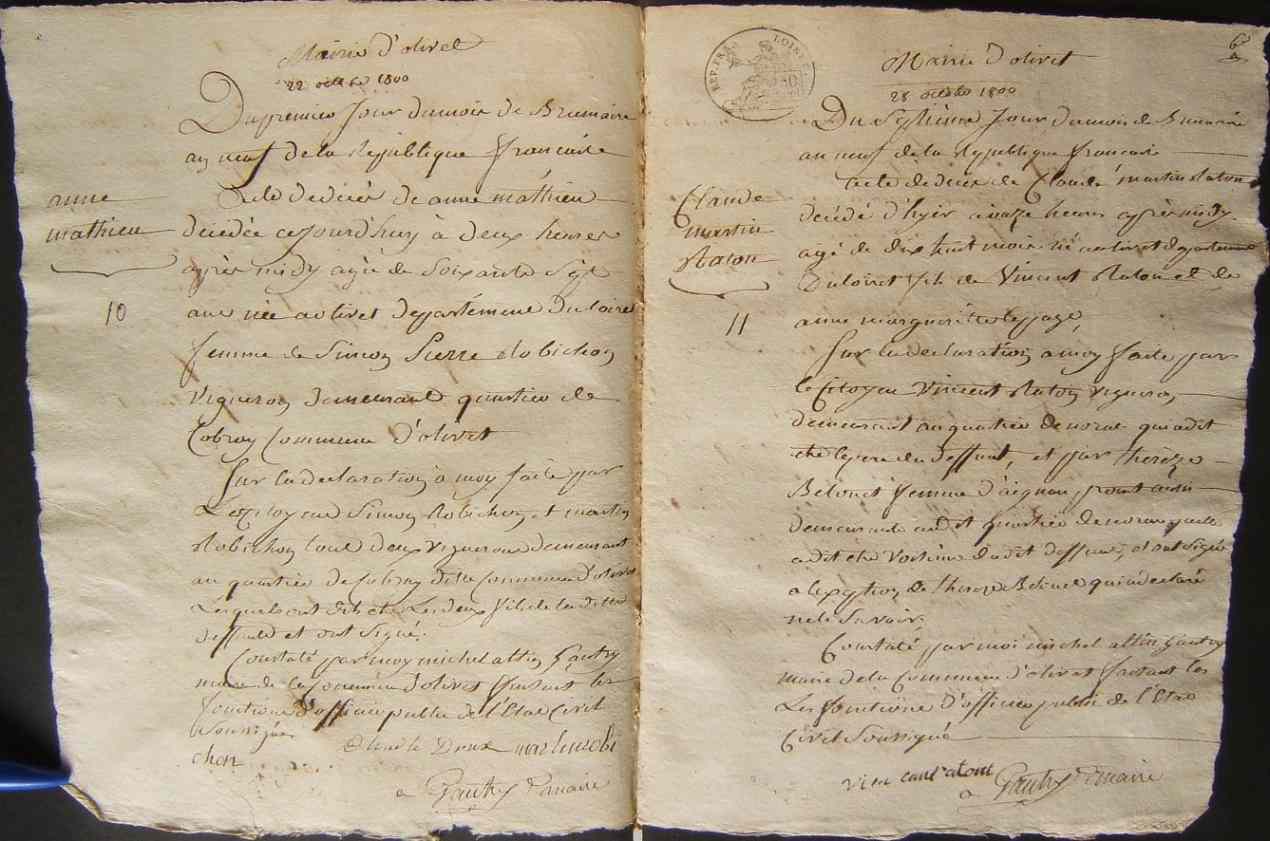 Mairie d'olivet
22 octobre 1800
Du premier Jour du mois de Brumaire
an neuf de la Republique francaise
Acte de décès de anne mathieu
décédée cejourd'huy à deux heures
après midy agée de Soixante Sept
ans née a olivet departement du loiret
femme de Simon Pierre Robichon
vigneron demeurant quartier de
Cobray Commune d'olivet
Sur la declaration à moy faite par
Simon Robichon et martin
Robichon tout deux vignerons demeurant
au quartier de Cobray dite Commune d'olivet
Lesquels ont dit etre Les deux fils de la ditte
deffunte et ont Signé.
Constaté par moy michel Gautry
maire de la Commune d'olivet faisant les
fonctions d'officier public de l'Etat Civil
Soussigné
martin robi
chon
Gautry maire
anne
mathieu
10
REP. FRA. LOIRET
6
Mairie d'olivet
28 octobre 1800
Du Septième Jour du mois de Brumaire
an neuf de la Republique francaise
acte de décès de Claude martin Raton
décédé d'hyer à onze heures après midy
agé de dix huit mois né a olivet departement
du loiret fils de Vincent Raton et de
anne margueritte lepage,
Sur la declaration a moy faite par
le Citoyen Vincent Raton vigneron
demeurant au quartier de qui a dit
etre le pere du deffunt, et par therèze
femme d'aignan
demeurante audit quartier de laquelle
a dit etre Voisine dudit deffunt, et ont Signé
a l'exception de therese qui a declaré
ne le Savoir.
Constaté par moi michel Gautry
maire de la Commune d'olivet faisant les
Les fonctions d'officier public de l'Etat
Civil Soussigné
Gautry maire
Claude
martin
Raton
11